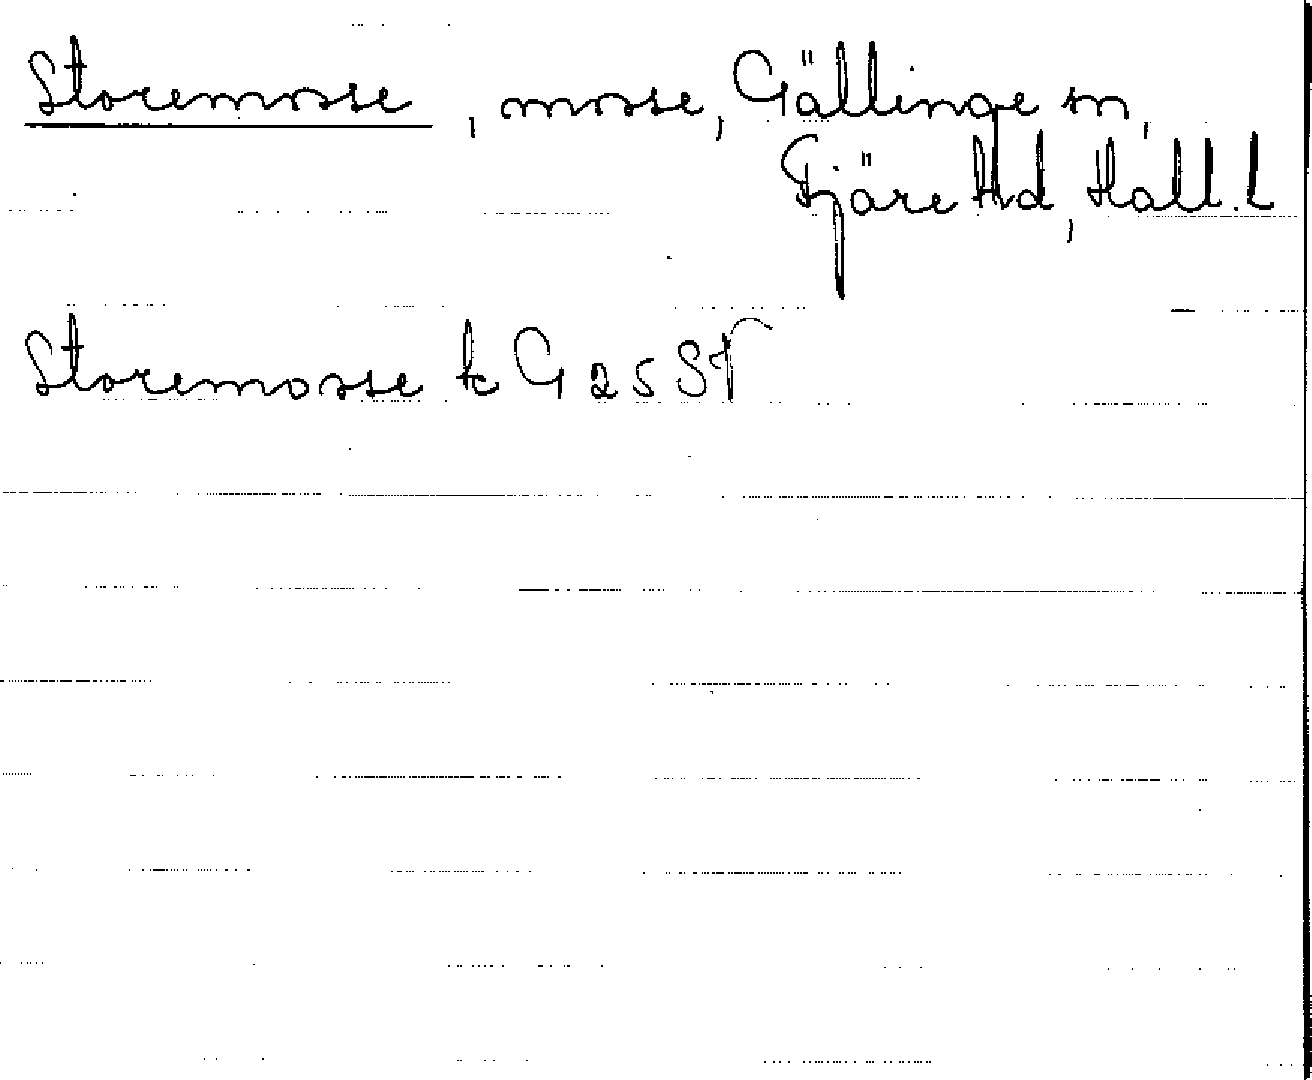 Storemosse, mosse, Gällinge sn,
Fjäre Hd, Hall. l
Storemosse k G 25 SV